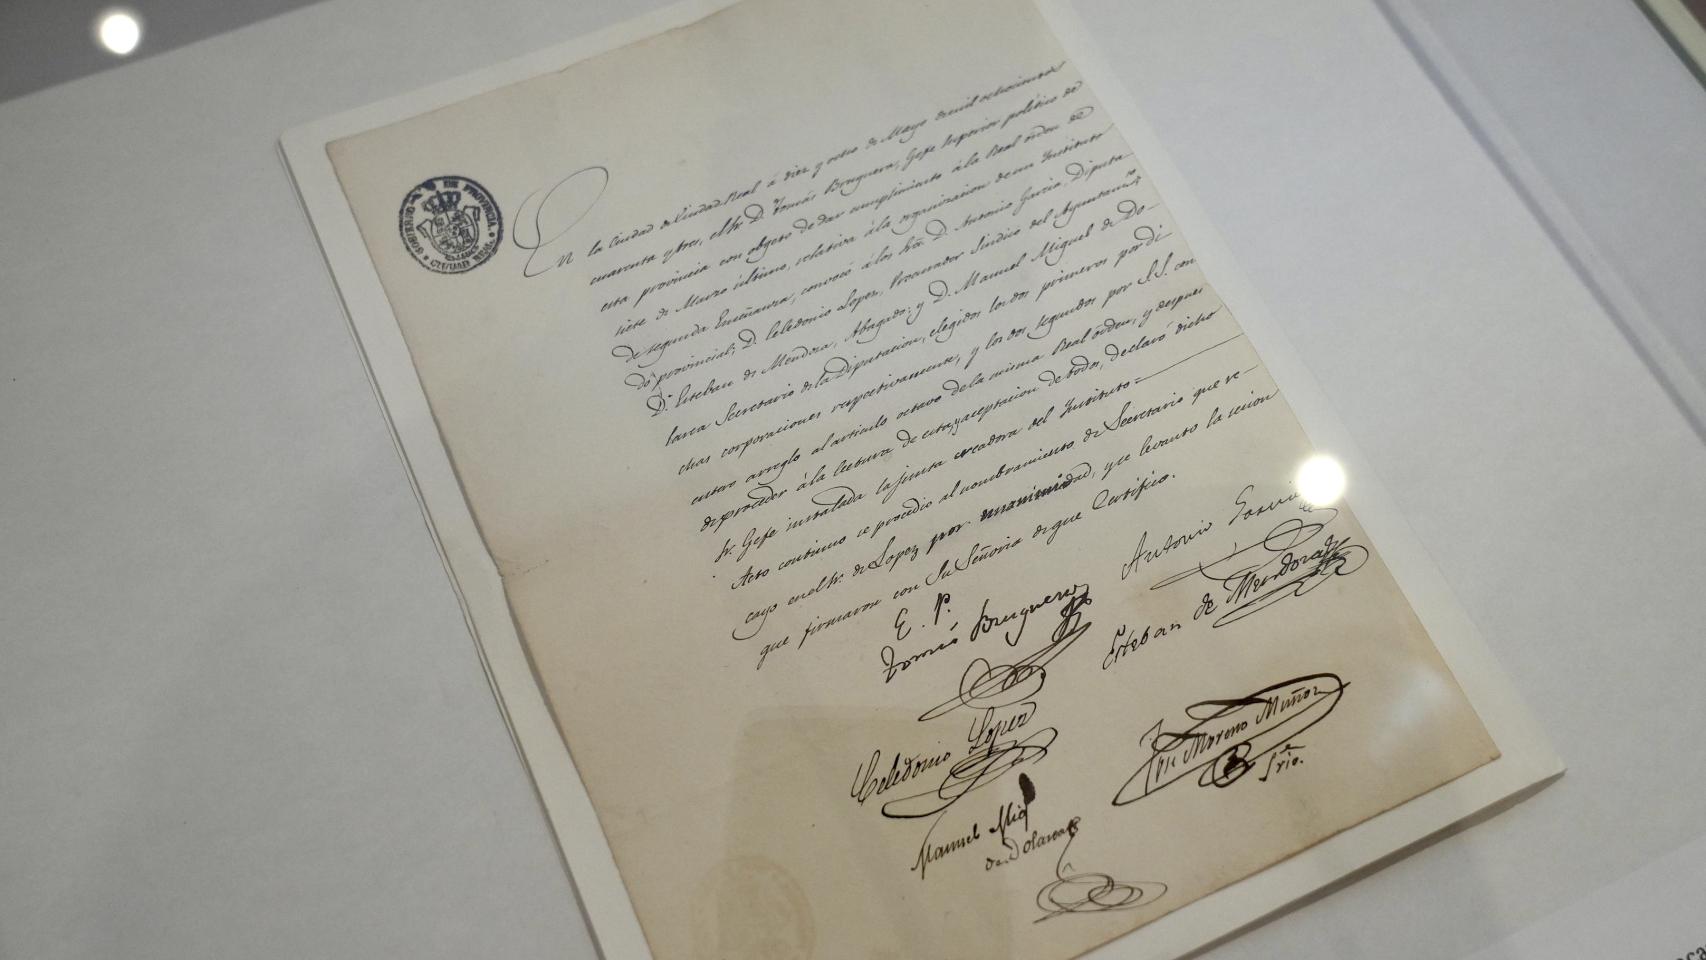 GOBIERNO DE PROVINCIA
CIUDAD REAL
En la Ciudad de Ciudad-Real á diez y ocho de Mayo de mil ochocientos
cuarenta y tres, el Sr. D. Tomás Bruguera, Gefe Superior político de
esta provincia con objeto de dar cumplimiento á la Real orden de
siete de Marzo último, relativa á la organizacion de un Instituto
de segunda Enseñanza, convocó á los Sres. D. Antonio Garcia, Diputa-
do provincial; D. Celedonio Lopez, Procurador Síndico del Ayuntamto.
D. Esteban de Mendoza, Abogado; y D. Manuel Miguel de Do-
larea Secretario de la Diputacion, elegidos los dos primeros por di
chas corporaciones respectivamente, y los dos segundos por S.S. con
entero arreglo al artículo octavo de la misma Real orden, y despues
de proceder á la lectura de esta, y aceptacion de todos, declaró dicho
Sr. Gefe instalada la junta creadora del Instituto=
Acto continuo se procedió al nombramiento de Secretario que re-
cayó en el Sr. de Lopez por unanimidad, y se levantó la sesion
que firmaron con Su Señoria de que Certifico.
E. P.
Tomás Bruguera
Antonio
Esteban de Mendoza
Celedonio Lopez
Moreno Muñoz
Srio.
Manuel Migl
de Dolarea